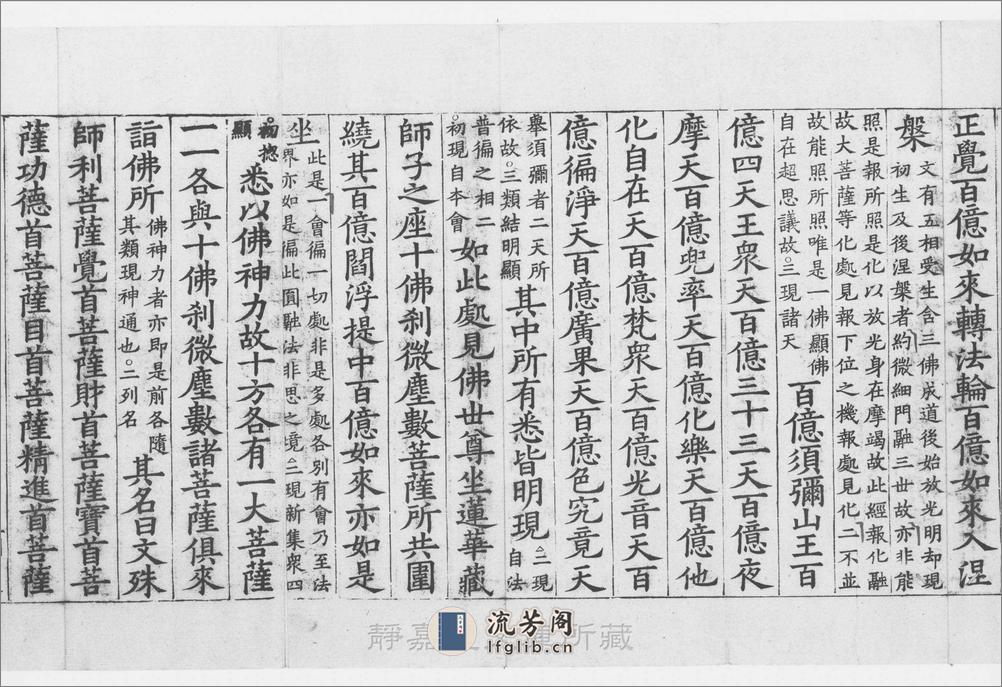 正覺百億如來轉法輪百億如來入涅
槃文有五相受生含三佛成道後始放光明却現
初生及後涅槃者約微細門融三世故亦非能
照是報所照是化以放光身在摩竭故此經報化融
故大菩薩等化處見報下位之機報處見化二不並
故能照所照唯是一佛顯佛
自在超思議故三現諸天百億須彌山王百
億四天王衆天百億三十三天百億夜
摩天百億兜率天百億化樂天百億他
化自在天百億梵衆天百億光音天百
億徧淨天百億廣果天百億色究竟天
舉須彌者二天所
依故三類結明顯其中所有悉皆明現二現
自法
普徧之相二
初現自本會如此處見佛世尊坐蓮華藏
師子之座十佛刹微塵數菩薩所共圍
繞其百億閻浮提中百億如來亦如是
坐此是一會徧一切處非是多處各別有會乃至法
界亦如是徧此圓融法非思之境二現新集衆四
初揔
顯悉以佛神力故十方各有一大菩薩
一一各與十佛刹微塵數諸菩薩俱來
詣佛所佛神力者亦即是前各隨
其類現神通也二列名其名曰文殊
師利菩薩覺首菩薩財首菩薩寶首菩
薩功德首菩薩目首菩薩精進首菩薩
靜嘉堂文庫所藏
流芳阁
lfglib.cn